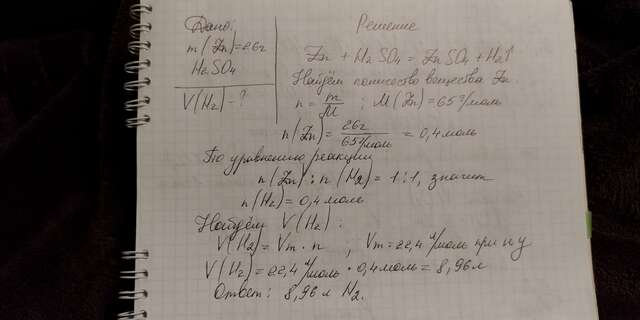 Дано:
m(Zn)=26г
H2SO4
V(H2) - ?
Решение
Zn + H2SO4 = ZnSO4 + H2↑
Найдём количество вещества Zn.
n = m/M ; M(Zn)=65 г/моль
n(Zn) = 26г/65 г/моль = 0,4 моль
По уравнению реакции
n(Zn) : n(H2) = 1:1, значит
n(H2) = 0,4 моль
Найдём V(H2):
V(H2) = Vm · n ; Vm = 22,4 л/моль при н у
V(H2) = 22,4 л/моль · 0,4 моль = 8,96 л
Ответ: 8,96 л H2.